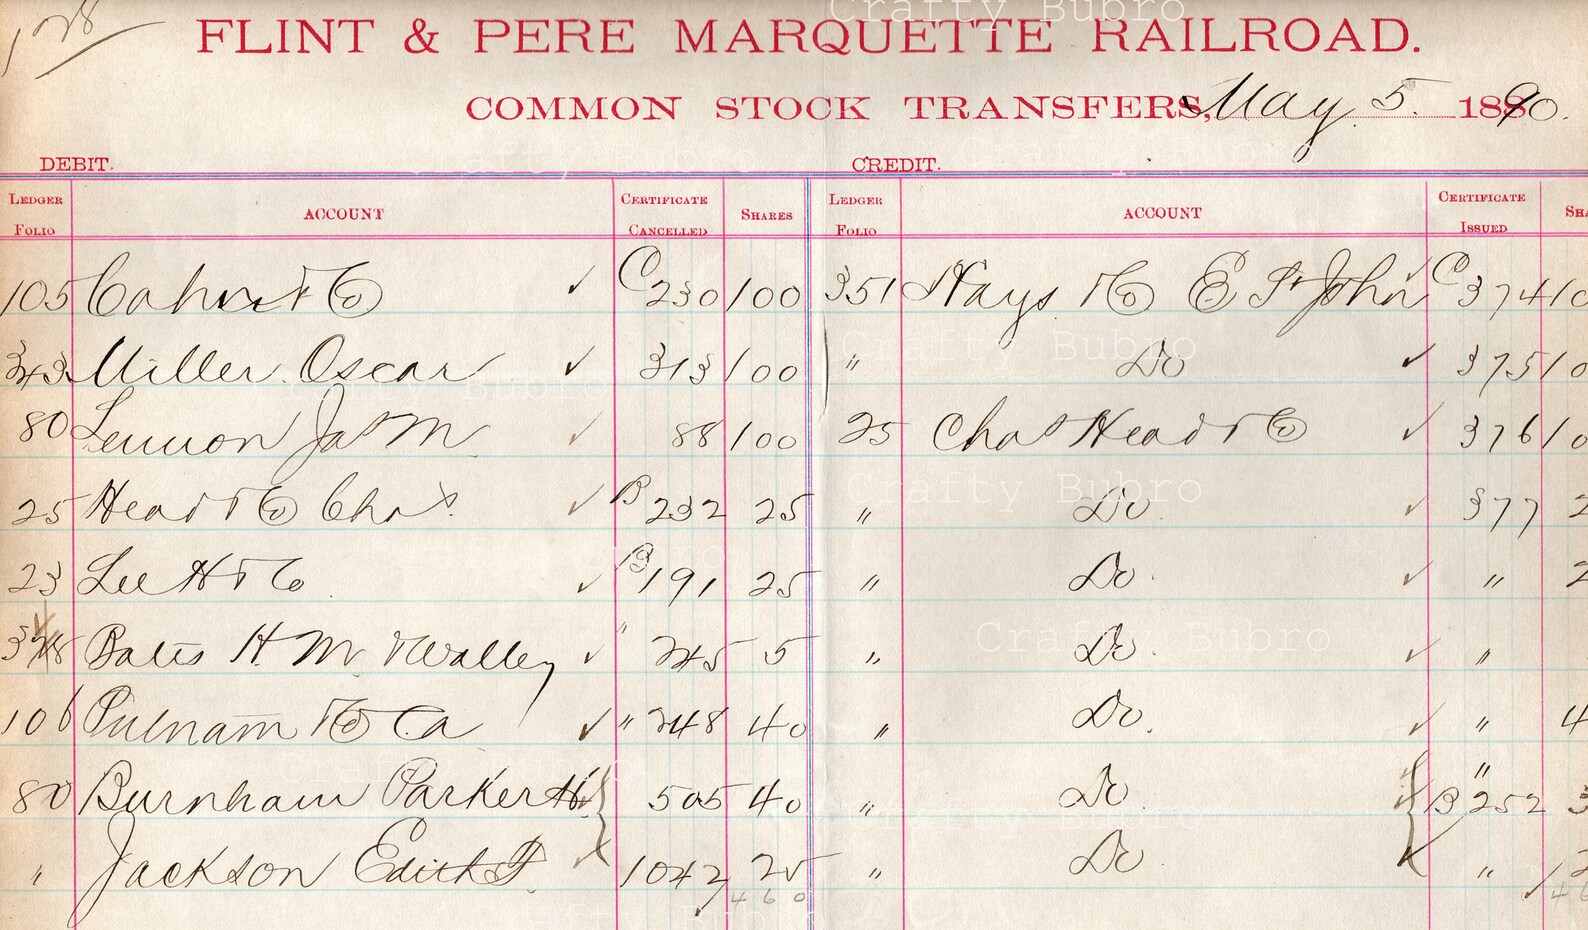 128
FLINT & PERE MARQUETTE RAILROAD.
COMMON STOCK TRANSFERS, May 5. 1890.
DEBIT. CREDIT.
LEDGER FOLIO ACCOUNT CERTIFICATE CANCELLED SHARES LEDGER FOLIO ACCOUNT CERTIFICATE ISSUED
105 Cohn & Co ✓ C 230 100 351 Hays & Co E St John ✓ C 374 10
343 Miller Oscar ✓ 313 100 " Do ✓ 375 10
80 Lennon Jas M ✓ 88 100 25 Chas Head & Co ✓ 376 10
25 Head & Co Chas ✓ B 232 25 " Do. ✓ 377 2
23 Lee H & Co ✓ B 191 25 " Do. ✓ " 2
Bates H. M. & Walley ✓ " 245 5 " Do. ✓ "
106 Putnam & Co C a ✓ " 248 40 " Do. ✓ " 4
80 Burnham Parker H. 505 40 " Do. " B 252 3
" Jackson Edith F. ✓ 1042 25 " Do ✓ " 2
460 46
Crafty Bubro